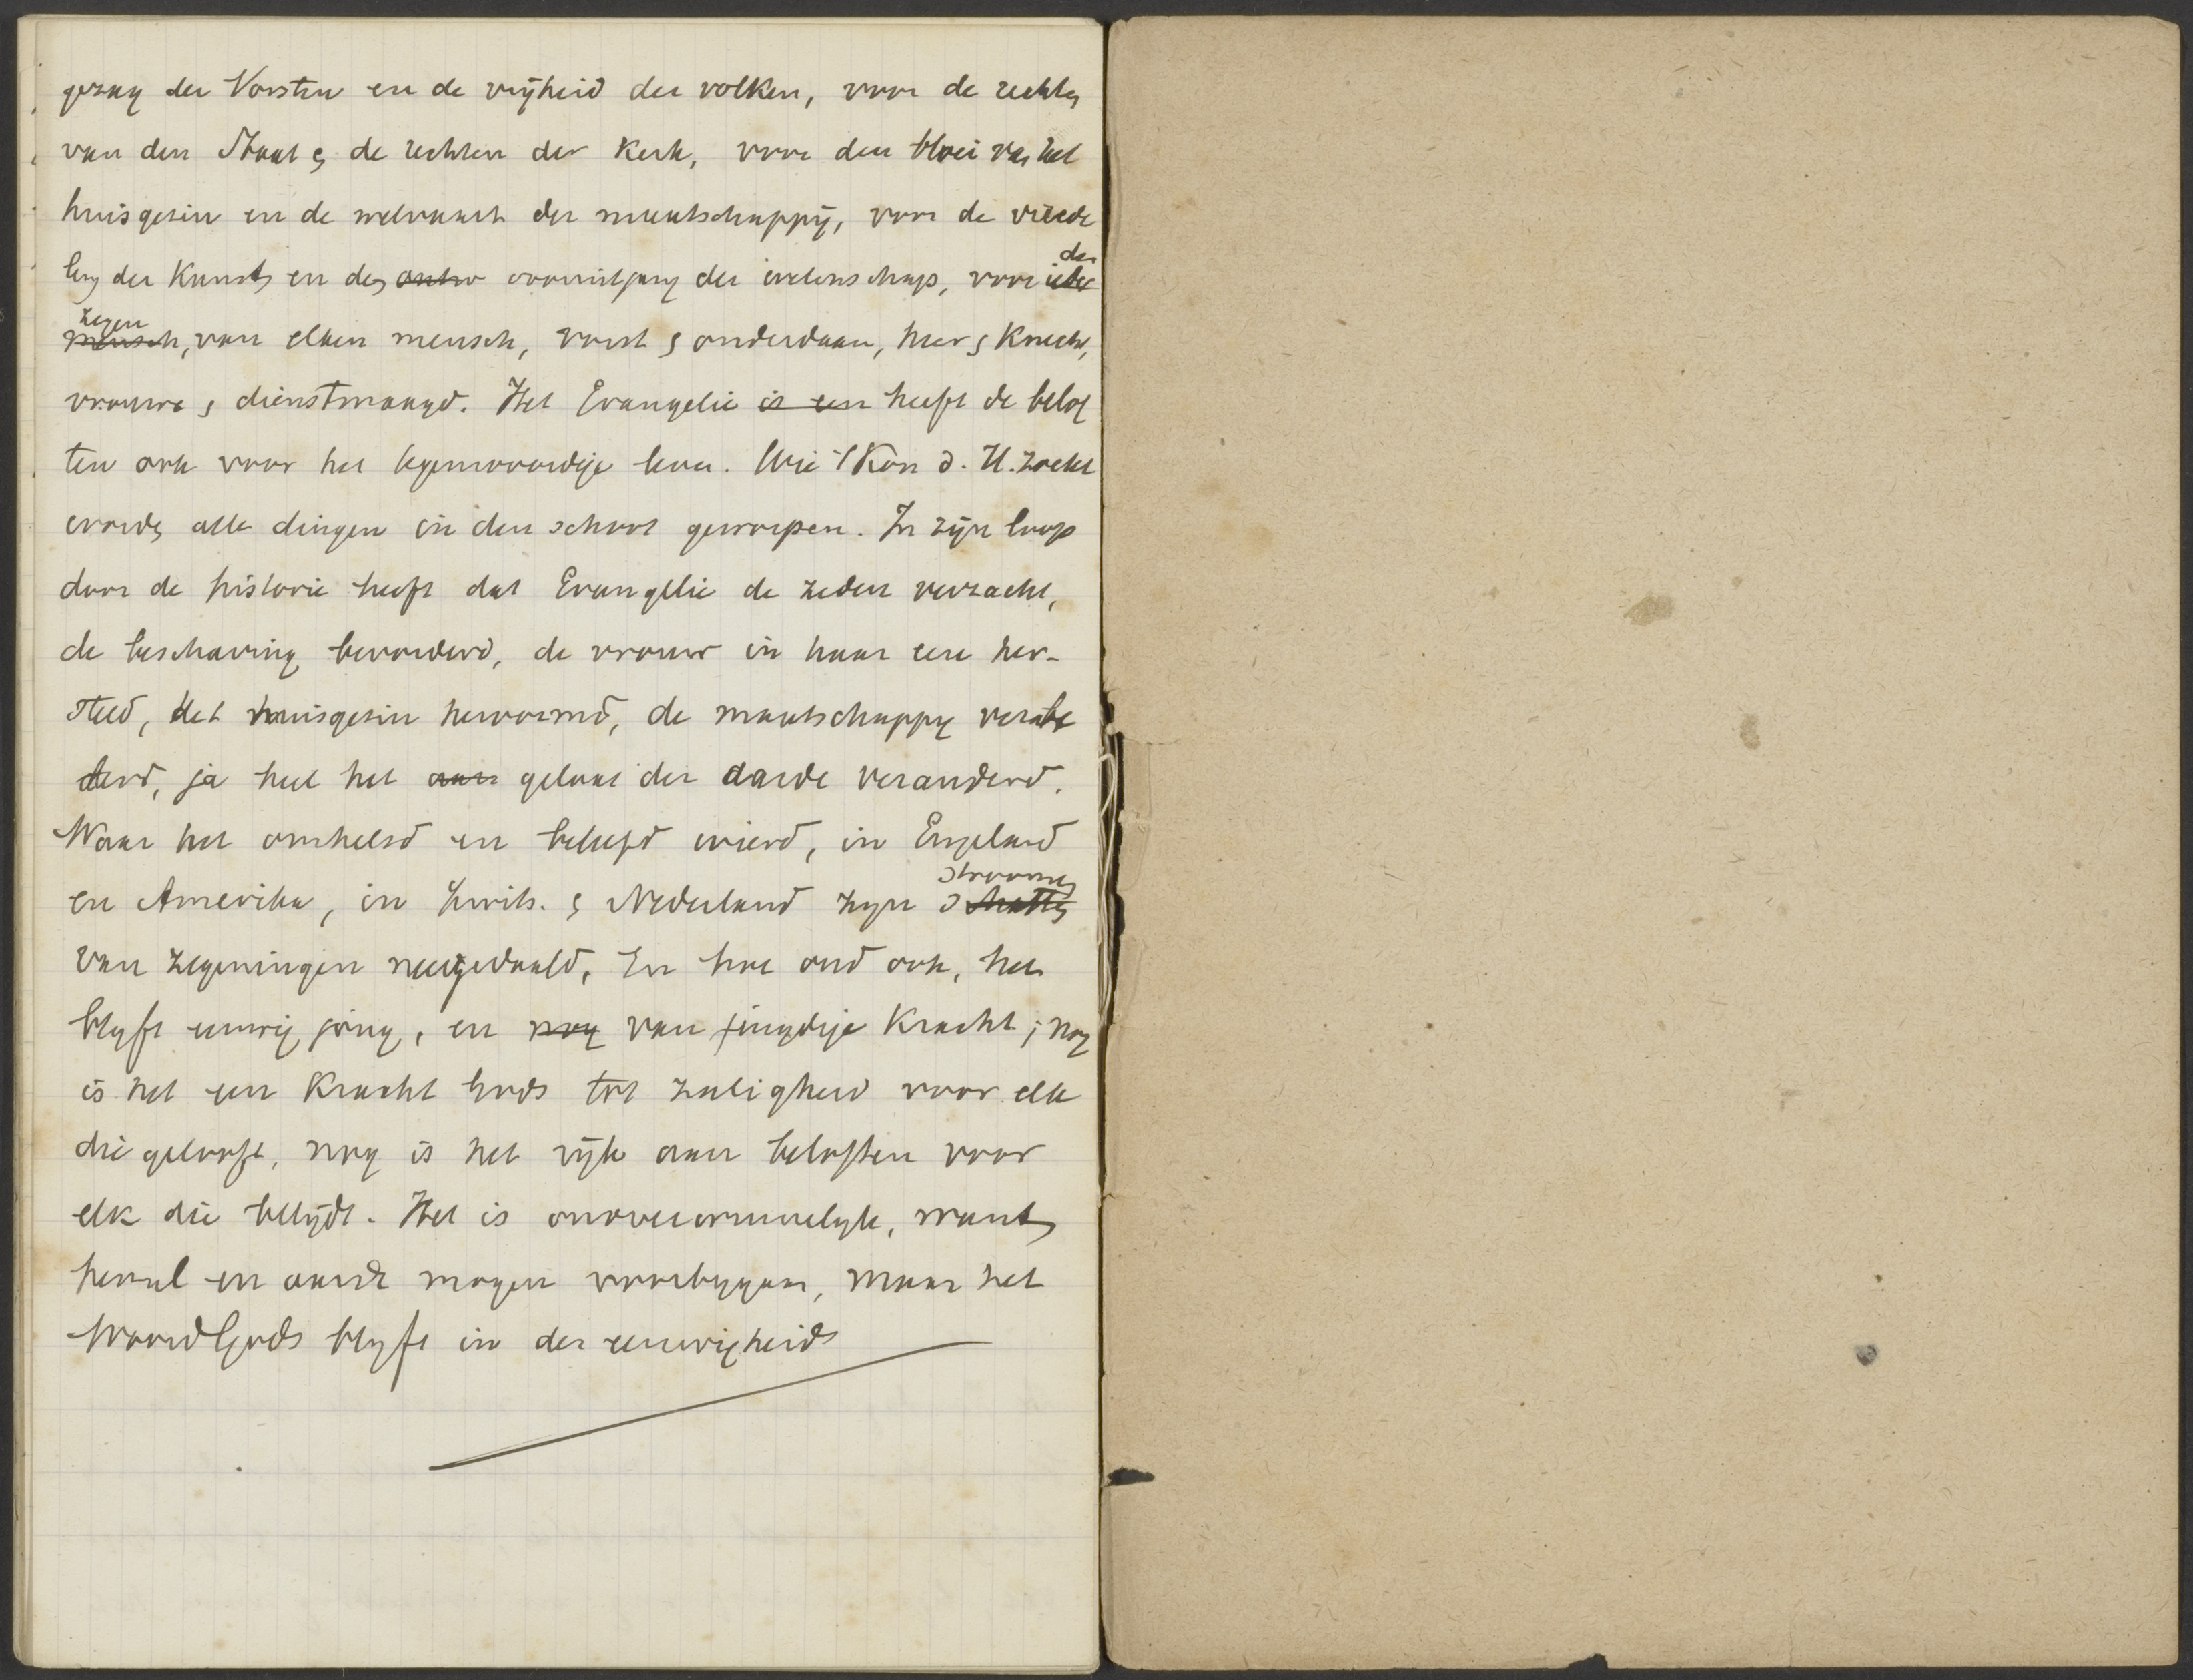 gezag der Vorsten en de vrijheid der volken, voor de rechten
van den Staat en de rechten der Kerk, voor den bloei van het
huisgezin en de welvaart der maatschappij, voor de verede
ling der Kunst en den ontw vooruitgang der wetenschap, voor ieder den
mensch, zegen van elken mensch, vorst en onderdaan, heer en Knecht,
vrouwe en dienstmaagd. Het Evangelie is een heeft de belof
ten ook voor het tegenwoordige leven. Wie 't Kon d. H. zoekt
worden alle dingen in den schoot geworpen. In zijn loop
door de historie heeft dat Evangelie de zeden verzacht,
de beschaving bevorderd, de vrouw in haar eere her-
steld, het huisgezin hervormd, de maatschappy verbe
terd, ja heel het aan gelaat der aarde veranderd.
Waar het omhelsd en beleefd wierd, in Engeland
en Amerika, in Zwits. en Nederland zyn schatten stroomen
van zegeningen neergedaald. En hoe oud ook, het
blyft eeuwig jong, en nog van jeugdige Kracht; nog
is het een Kracht Gods tot zaligheid voor elk
die gelooft, nog is het rijk aan beloften voor
elk die belijdt. Het is onoverwinnelyk, want
hemel en aarde mogen voorbygaan, maar het
Woord Gods blyft in der eeuwigheid